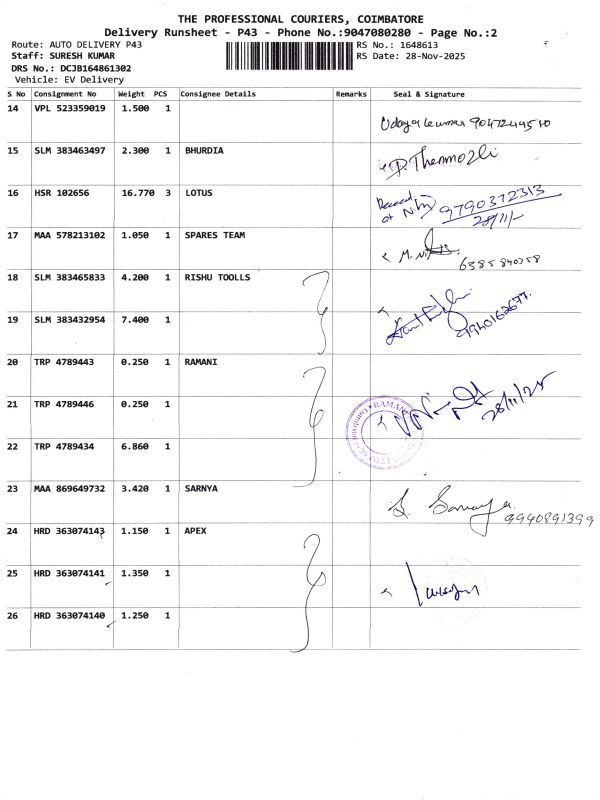 THE PROFESSIONAL COURIERS, COIMBATORE
Delivery Runsheet - P43 - Phone No.:9047080280 - Page No.:2
Route: AUTO DELIVERY P43
Staff: SURESH KUMAR
DRS No.: DCJB164861302
Vehicle: EV Delivery
RS No.: 1648613
RS Date: 28-Nov-2025
S No Consignment No Weight PCS Consignee Details Remarks Seal & Signature
14 VPL 523359019 1.500 1
15 SLM 383463497 2.300 1 BHURDIA
P. Thenmozli
16 HSR 102656 16.770 3 LOTUS
9790372313
28/11/-
17 MAA 578213102 1.050 1 SPARES TEAM
6385840358
18 SLM 383465833 4.200 1 RISHU TOOLLS
19 SLM 383432954 7.400 1
9940162677.
20 TRP 4789443 0.250 1 RAMANI
21 TRP 4789446 0.250 1
28/11/25
22 TRP 4789434 6.860 1
23 MAA 869649732 3.420 1 SARNYA
9940891399
24 HRD 363074143 1.150 1 APEX
25 HRD 363074141 1.350 1
26 HRD 363074140 1.250 1